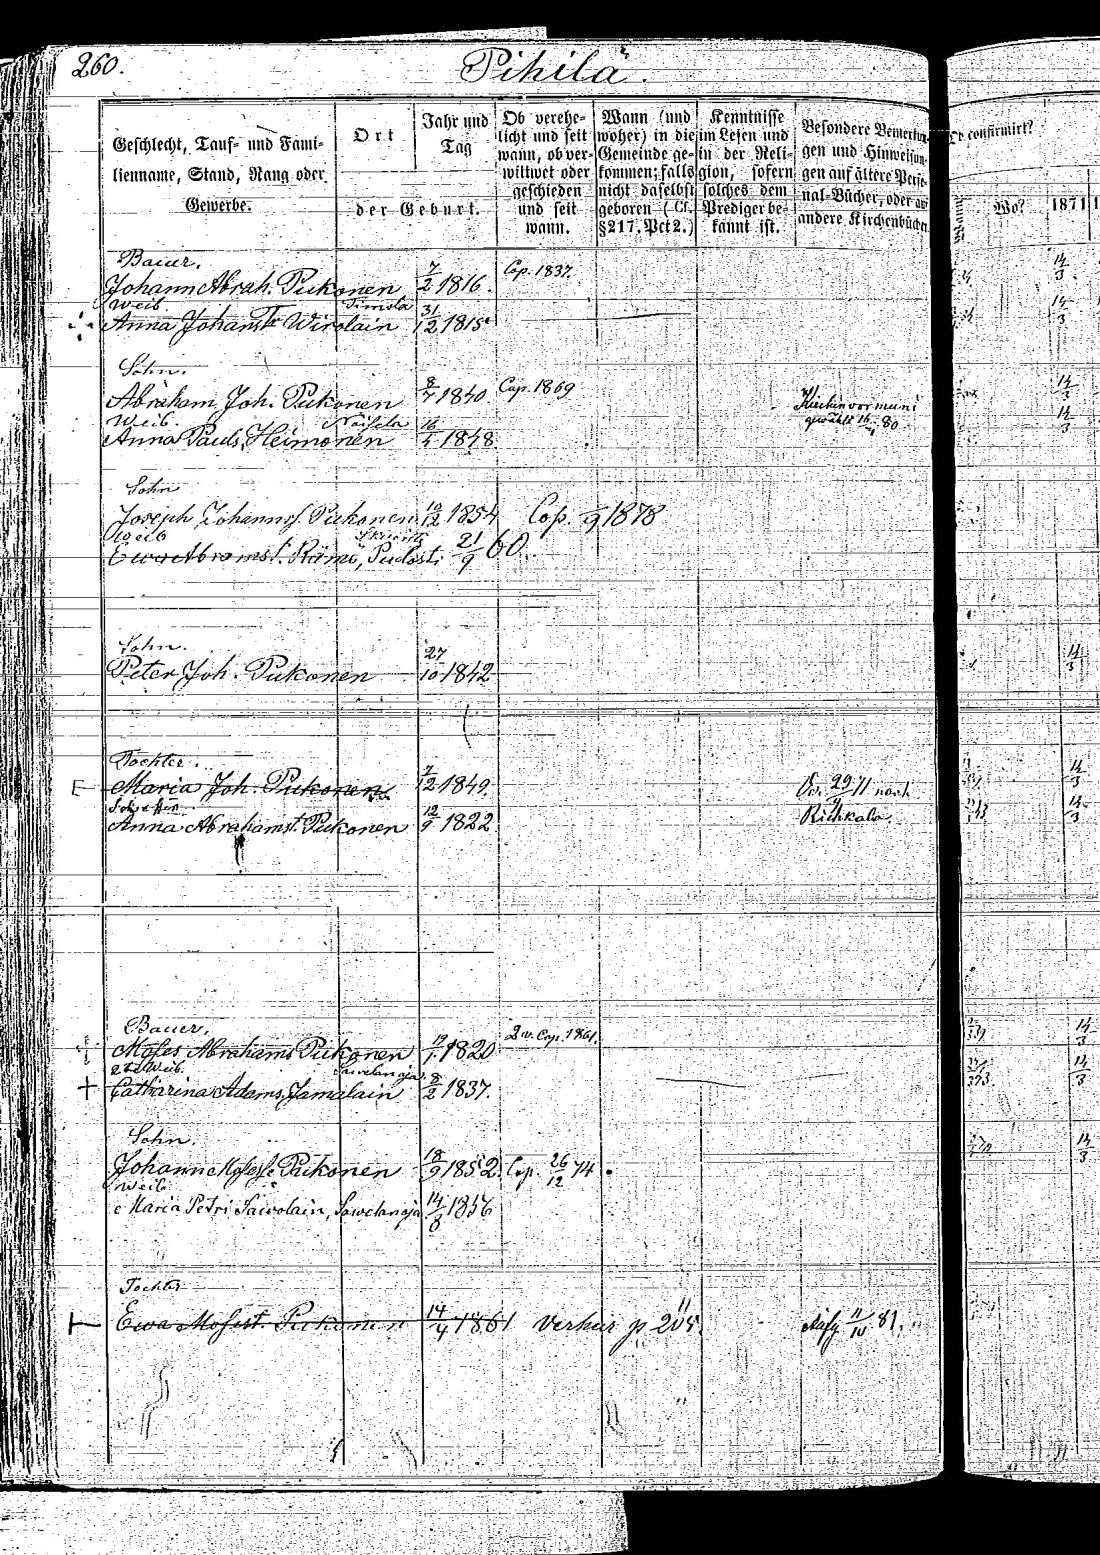 260. Pihilä.
Geschlecht, Tauf- und Fami-
lienname, Stand, Rang oder
Gewerbe.
Ort
der Geburt.
Jahr und
Tag
Ob verehe-
licht und seit
wann, ob ver-
wittwet oder
geschieden
und seit
wann.
Wann (und
woher) in die
Gemeinde ge-
kommen; falls
nicht daselbst
geboren (Cf.
§217. Pct 2.)
Kenntnisse
im Lesen und
in der Reli-
gion, sofern
solches dem
Prediger be-
kannt ist.
Besondere Bemerkun-
gen und Hinweisun-
gen auf ältere Perso-
nal-Bücher, oder auf
andere Kirchenbücher
confirmirt?
Wann?
Wo?
1871
Bauer.
Johann Abrah. Pukonen 7/2 1816. Cop. 1837. 14/3
Weib
Anna Johanst. Wirolain 31/12 1815 14/3
Sohn.
Abraham Joh. Pukonen 8/7 1840 Cop. 1869 14/3
Weib.
Anna Pauls. Heimonen 16/4 1848 14/3
Sohn
Joseph Johannes. Pukonen 1854 Cop. 1878
Weib
Ewa Abramst. Rämö, Pudosti 21/9 60.
Sohn.
Peter Joh. Pukonen 27/10 1842 14/3
Tochter.
Maria Joh. Pukonen 7/12 1849. 29/11 nach 14/3
Anna Abrahamst. Pukonen 12/9 1822 14/3
Bauer.
Moses Abrahams Pukonen 19/1 1820 2 v. Cop. 1861. 14/3
2te Weib. Sawelanoja
Catharina Adams. Jamalain 8/2 1837. 14/3
Sohn.
Johann Moses. Pukonen 18/9 1852. Cop. 26/12 74. 14/3
Weib
Maria Petri Saivolain, Sawelanoja 14/8 1856
Tochter
Ewa Mosest. Pukonen 14/4 1861 81.